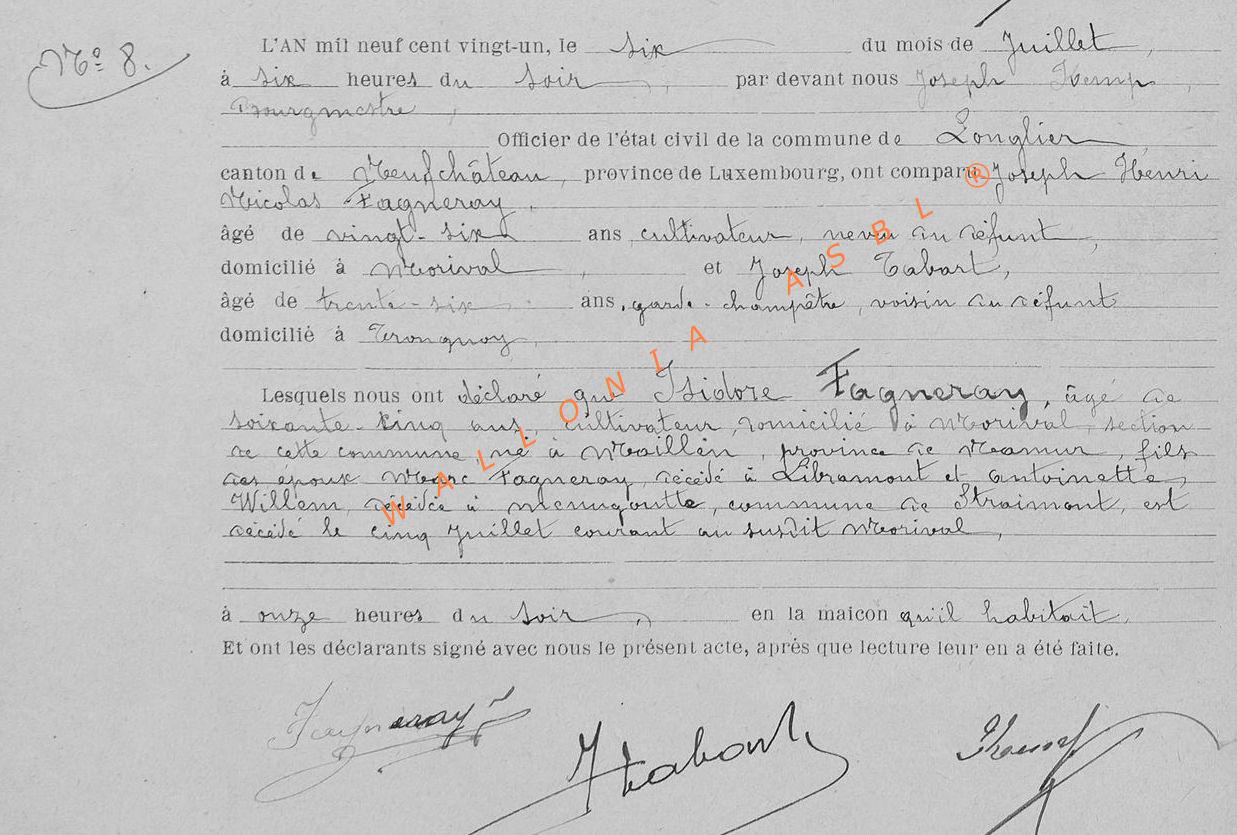 N° 8.
L'AN mil neuf cent vingt-un, le six du mois de Juillet,
à six heures du soir, par devant nous Joseph Hemp,
Bourgmestre,
Officier de l'état civil de la commune de Longlier
canton de Neufchâteau, province de Luxembourg, ont comparu Joseph Henri
Nicolas Fagneray,
âgé de vingt-six ans, cultivateur, neveu du défunt,
domicilié à Morival, et Joseph Tabart,
âgé de trente-six ans, garde-champêtre, voisin du défunt
domicilié à Tronquoy,
Lesquels nous ont déclaré que Isidore Fagneray, âgé de
soixante-cinq ans, cultivateur, domicilié à Morival, section
de cette commune, né à Maillen, province de Namur, fils
des époux Marc Fagneray, décédé à Libramont et Antoinette
Willem, décédée à Menugoutte, commune de Straimont, est
décédé le cinq Juillet courant au susdit Morival,
à onze heures du soir, en la maicon qu'il habitait.
Et ont les déclarants signé avec nous le présent acte, après que lecture leur en a été faite.
Fagneray J
J Tabart
WALLONIA ASBL ®